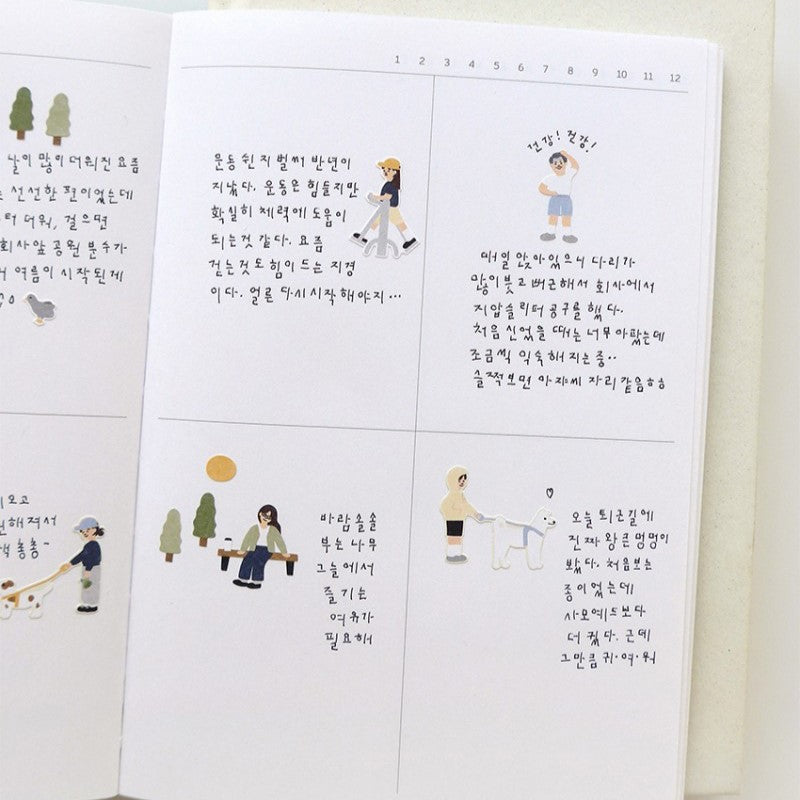 날이 많이 더워진 요즘
선선한 편이었는데
더워, 걸으면
회사앞 공원 분수가
여름이 시작된게
1 2 3 4 5 6 7 8 9 10 11 12
운동 쉰지 벌써 반년이
지났다. 운동은 힘들지만
확실히 체력에 도움이
되는것 같다. 요즘
걷는것도 힘이 드는 지경
이다. 얼른 다시 시작해야지...
건강! 건강!
매일 앉아있으니 다리가
많이 붓고 뻐근해서 회사에서
지압슬리퍼 공구를 했다.
처음 신었을 때는 너무 아팠는데
조금씩 익숙해지는중..
슬쩍보면 아저씨 자리 같음ㅎㅎ
총총~
바람 솔솔
부는 나무
그늘에서
즐기는
여유가
필요해
오늘 퇴근길에
진짜 왕큰 멍멍이
봤다. 처음보는
종이었는데
사모예드보다
더 컸다. 근데
그만큼 귀·여·워